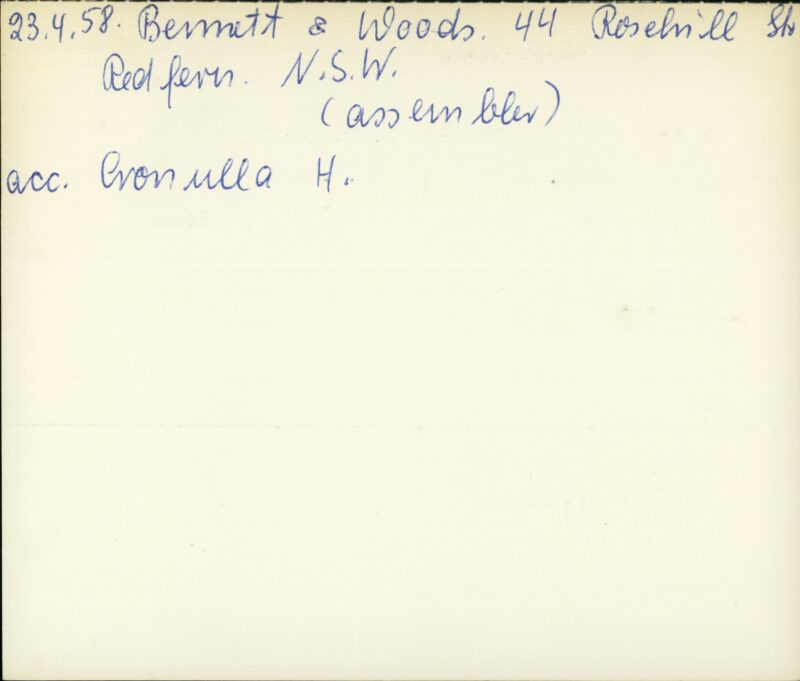 23.4.58. Bennett & Woods. 44 Rosehill Str
Redfern. N.S.W.
(assembler)
acc. Cronulla H.